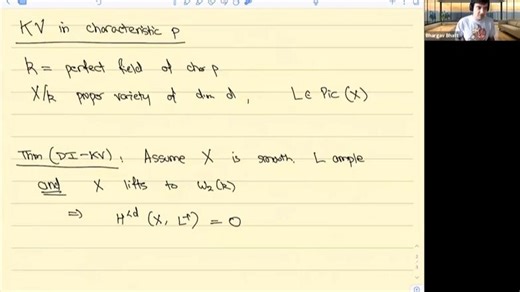 KV in characteristic p
k = perfect field of char p
X/k proper variety of dim d, L ∈ Pic(X)
Thm (DI-KV): Assume X is smooth, L ample
and X lifts to W₂(k)
⇒ H^{<d}(X, L⁻¹) = 0
Bhargav Bhatt